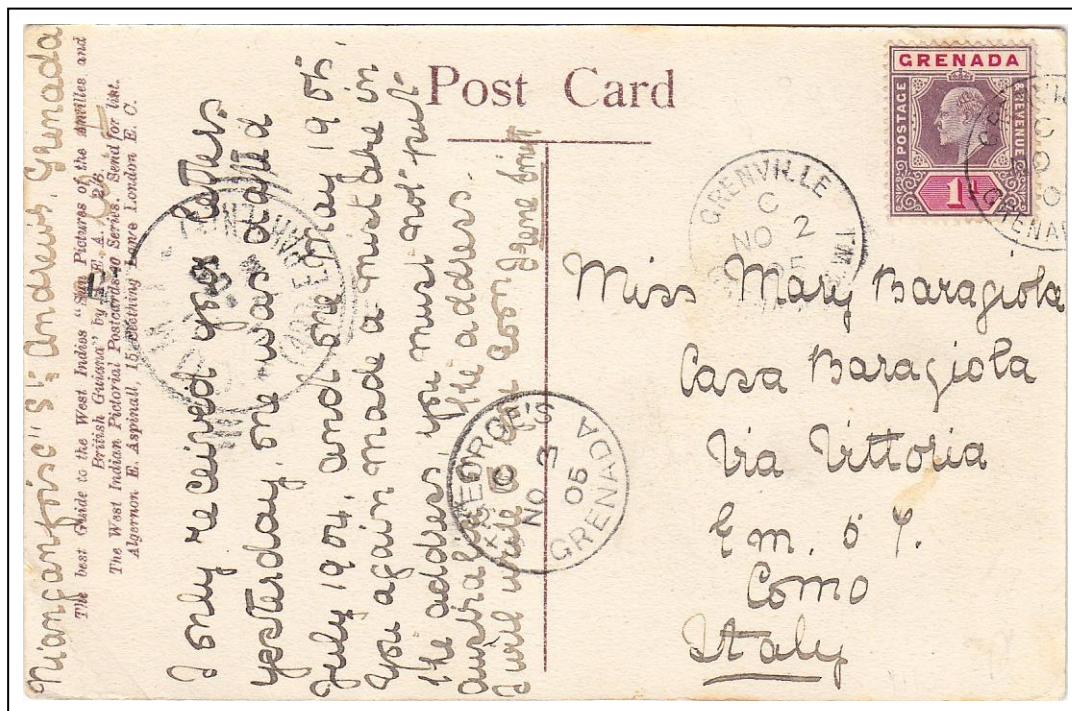 Post Card
GRENADA
POSTAGE
& REVENUE
1d
GRENVILLE
C
NO 2
05
GRENADA
Miss Mary Baragiola
Casa Baragiola
Via Vittoria
Em. 5
Como
Italy
ST. GEORGE'S
NO 3
05
GRENADA
St. Andrews, Grenada
The best Guide to the West Indies "Sun Pictures of the Antilles and
British Guiana" by E. A. 2/6.
The West Indian Pictorial Postcards Series. Send for list.
Algernon E. Aspinall, 15 Lane London E. C.
I only received your letters
yesterday, one was dated
July 1904, and one may 1905,
you again made a mistake in
the address, you must not put
australia the address.
I will write to you soon Irene